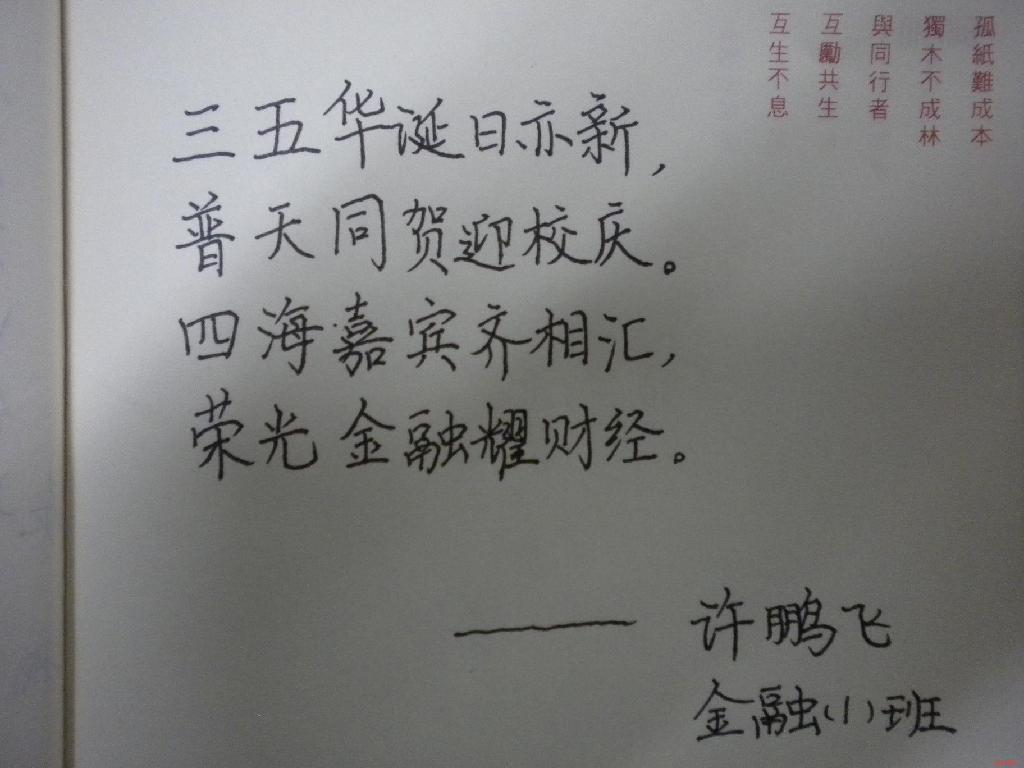 三五华诞日亦新，
普天同贺迎校庆。
四海嘉宾齐相汇，
荣光金融耀财经。
——许鹏飞
金融（1）班
孤紙難成本
獨木不成林
與同行者
互勵共生
互生不息